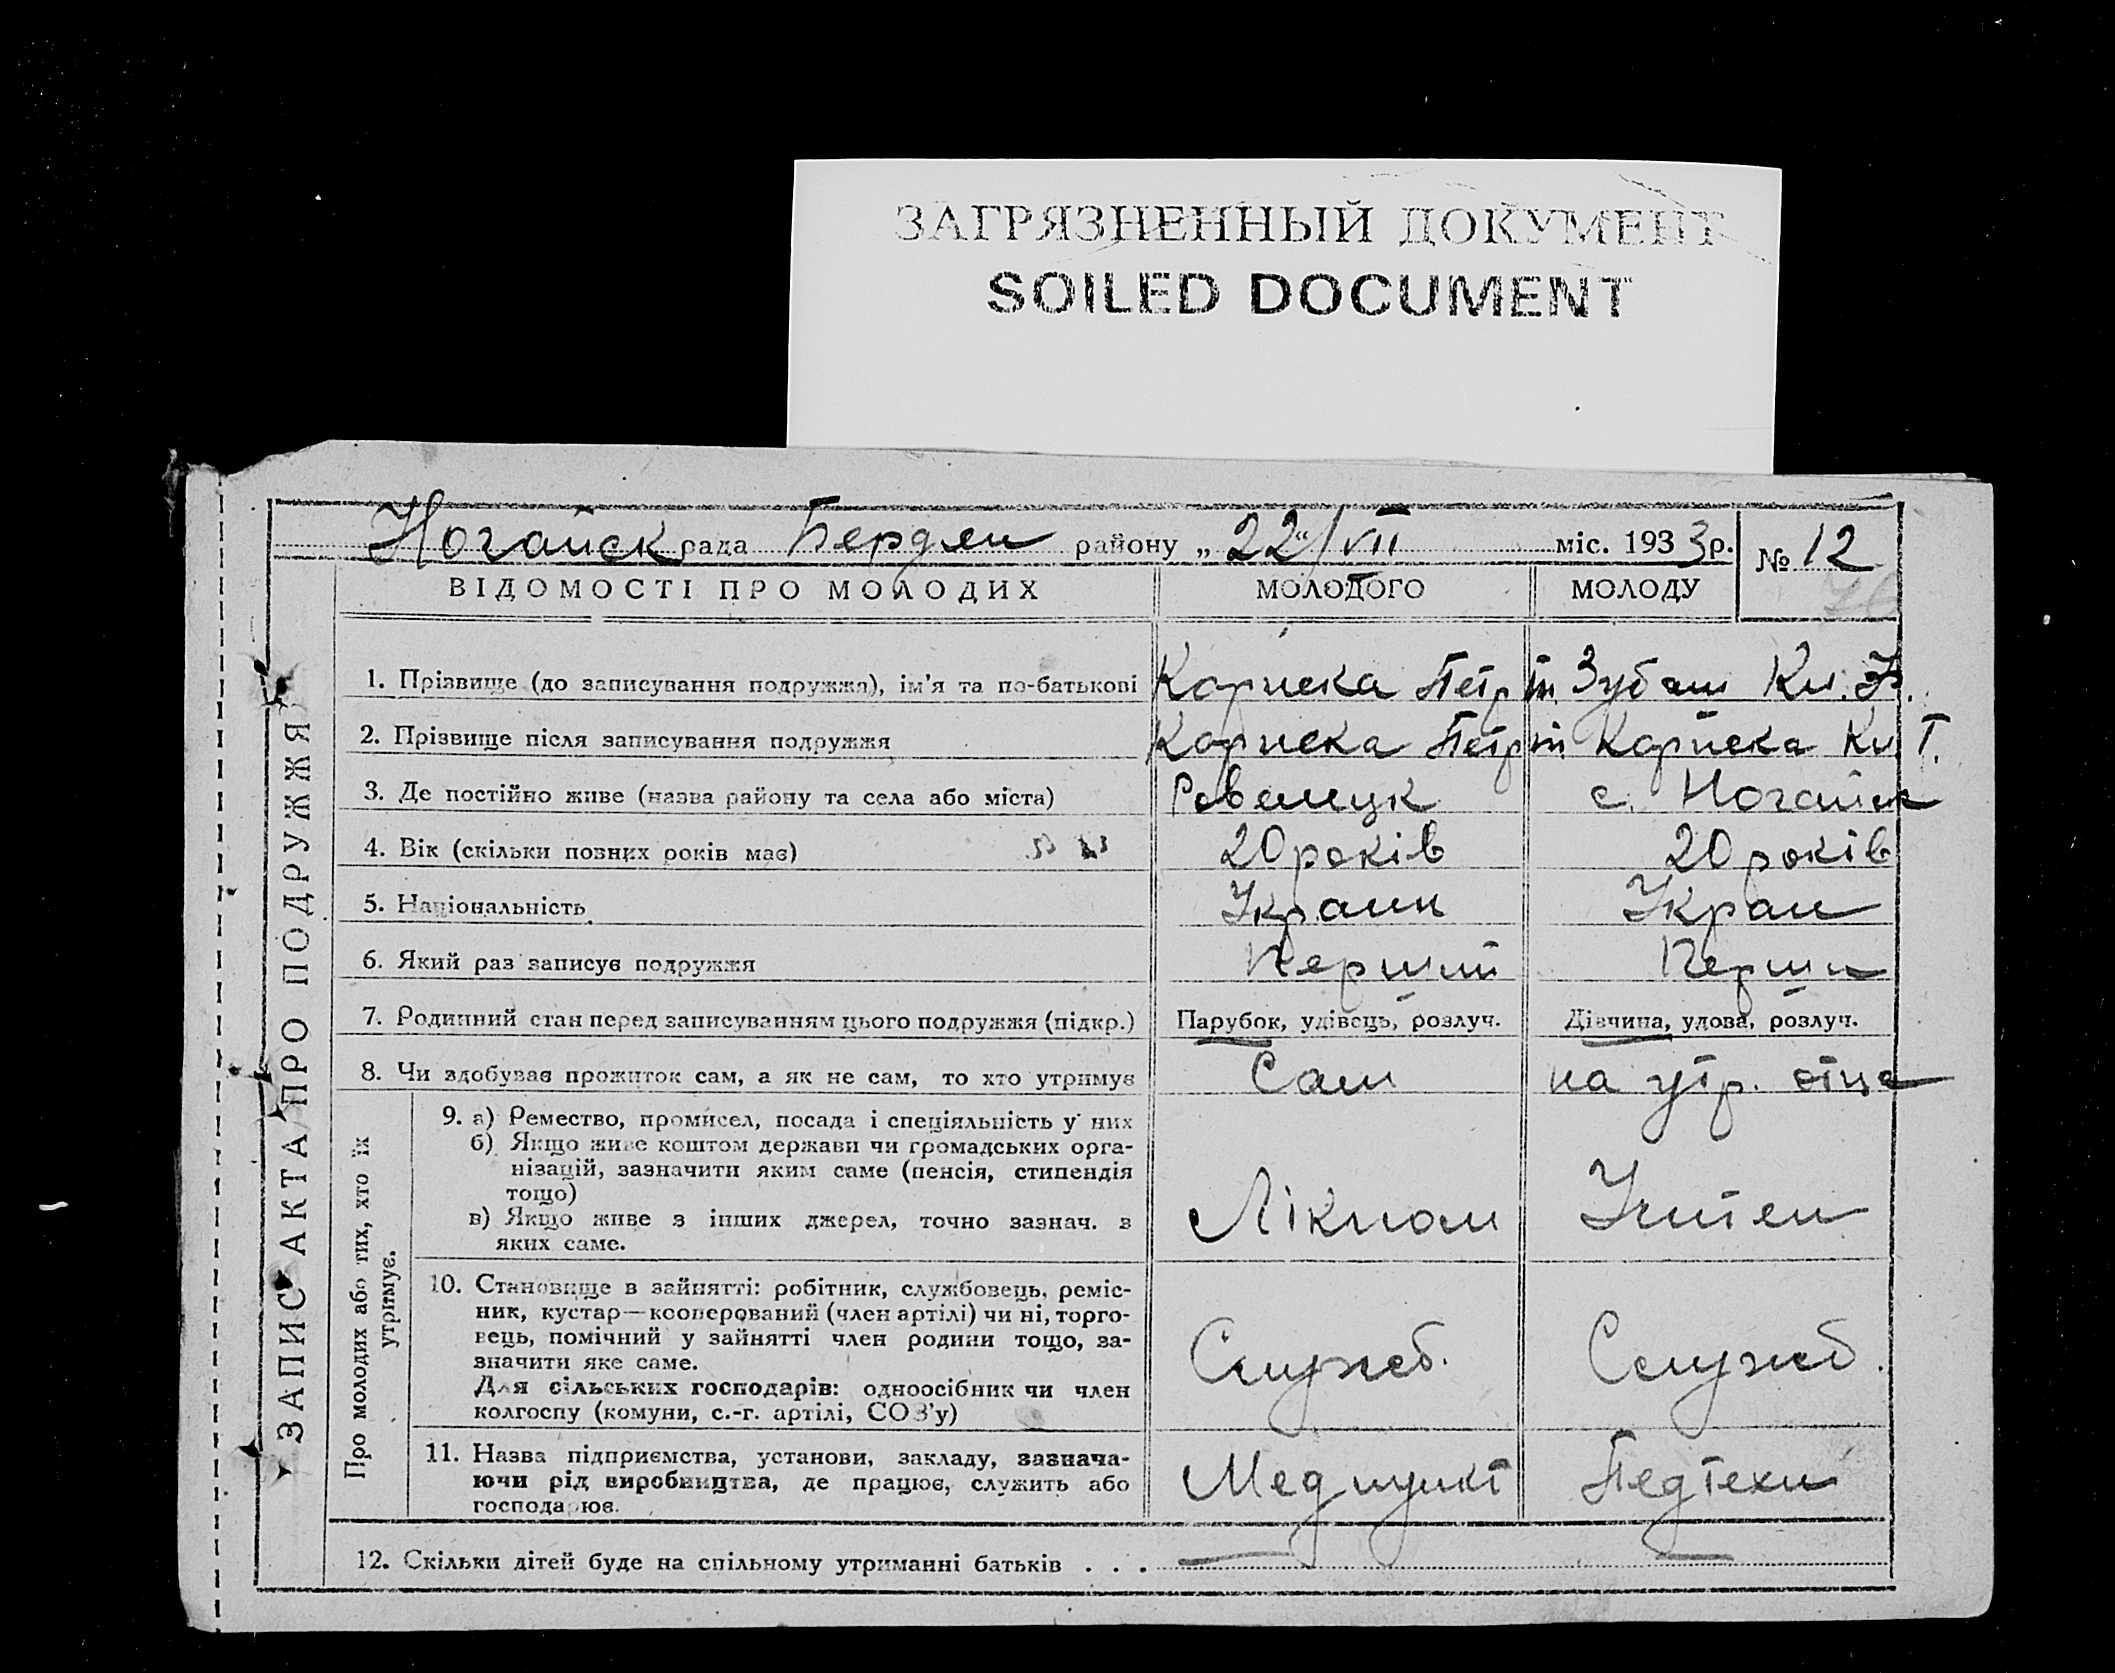 ЗАГРЯЗНЕННЫЙ ДОКУМЕНТ
SOILED DOCUMENT
Ногайск рада Бердян району „22“/VII міс. 1933р. № 12
ВІДОМОСТІ ПРО МОЛОДИХ МОЛОДОГО МОЛОДУ
ЗАПИС АКТА ПРО ПОДРУЖЖЯ
1. Прізвище (до записування подружжя), ім’я та по-батькові Зубаш
2. Прізвище після записування подружжя
3. Де постійно живе (назва району та села або міста) с. Ногайськ
4. Вік (скільки повних років має) 20 років 20 років
5. Національність Украин Украи
6. Який раз записує подружжя Перший Перши
7. Родинний стан перед записуванням цього подружжя (підкр.) Парубок, удівець, розлуч. Дівчина, удова, розлуч.
8. Чи здобував прожиток сам, а як не сам, то хто утримує Сам на утр. отца
Про молодих або тих, хто їх
утримує.
9. а) Ремество, промисел, посада і спеціяльність у них
б) Якщо живе коштом держави чи громадських орга-
нізацій, зазначити яким саме (пенсія, стипендія
тощо)
в) Якщо живе з інших джерел, точно зазнач. з
яких саме.
Лікпом Учител
10. Становище в зайнятті: робітник, службовець, реміс-
ник, кустар—кооперований (член артілі) чи ні, торго-
вець, помічний у зайнятті член родини тощо, за-
значити яке саме.
Для сільських господарів: одноосібник чи член
колгоспу (комуни, с.-г. артілі, СОЗ’у)
Служб. Служб.
11. Назва підприємства, установи, закладу, зазнача-
ючи рід виробництва, де працює, служить або
господарює.
Медпункт Педтехн
12. Скільки дітей буде на спільному утриманні батьків . . .